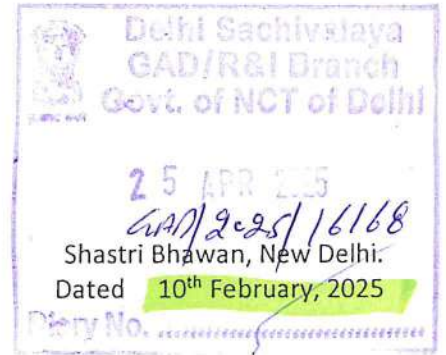 Delhi Sachivalaya
GAD/R&I Branch
Govt. of NCT of Delhi
25 APR 2025
GAD/2025/16168
Shastri Bhawan, New Delhi.
Dated 10th February, 2025
Diary No. ..............................